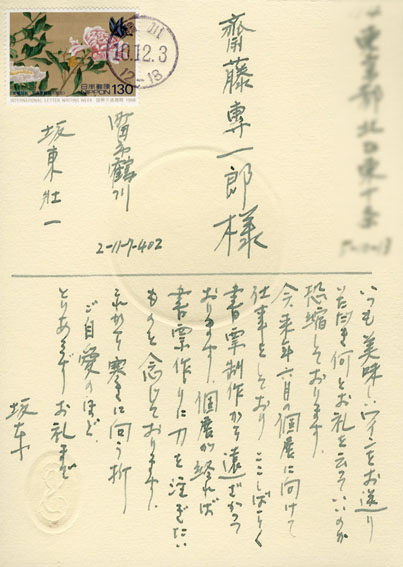 川
10.12.3
12-18
日本郵便
NIPPON 130
INTERNATIONAL LETTER WRITING WEEK 国際文通週間 1998
齋藤専一郎様
鶴川
2-11-7-402
坂東壮一
いつも美味しいワインをお送り
いただき何とお礼を云っていいのか
恐縮しております。
今、来年六月の個展に向けて
仕事をしており ここしばらく
書票制作から遠ざかって
おります。個展が終れば
書票作りに力を注ぎたい
ものと念じております。
これから寒さに向う折
ご自愛のほど
とりあえず お礼まで
坂東